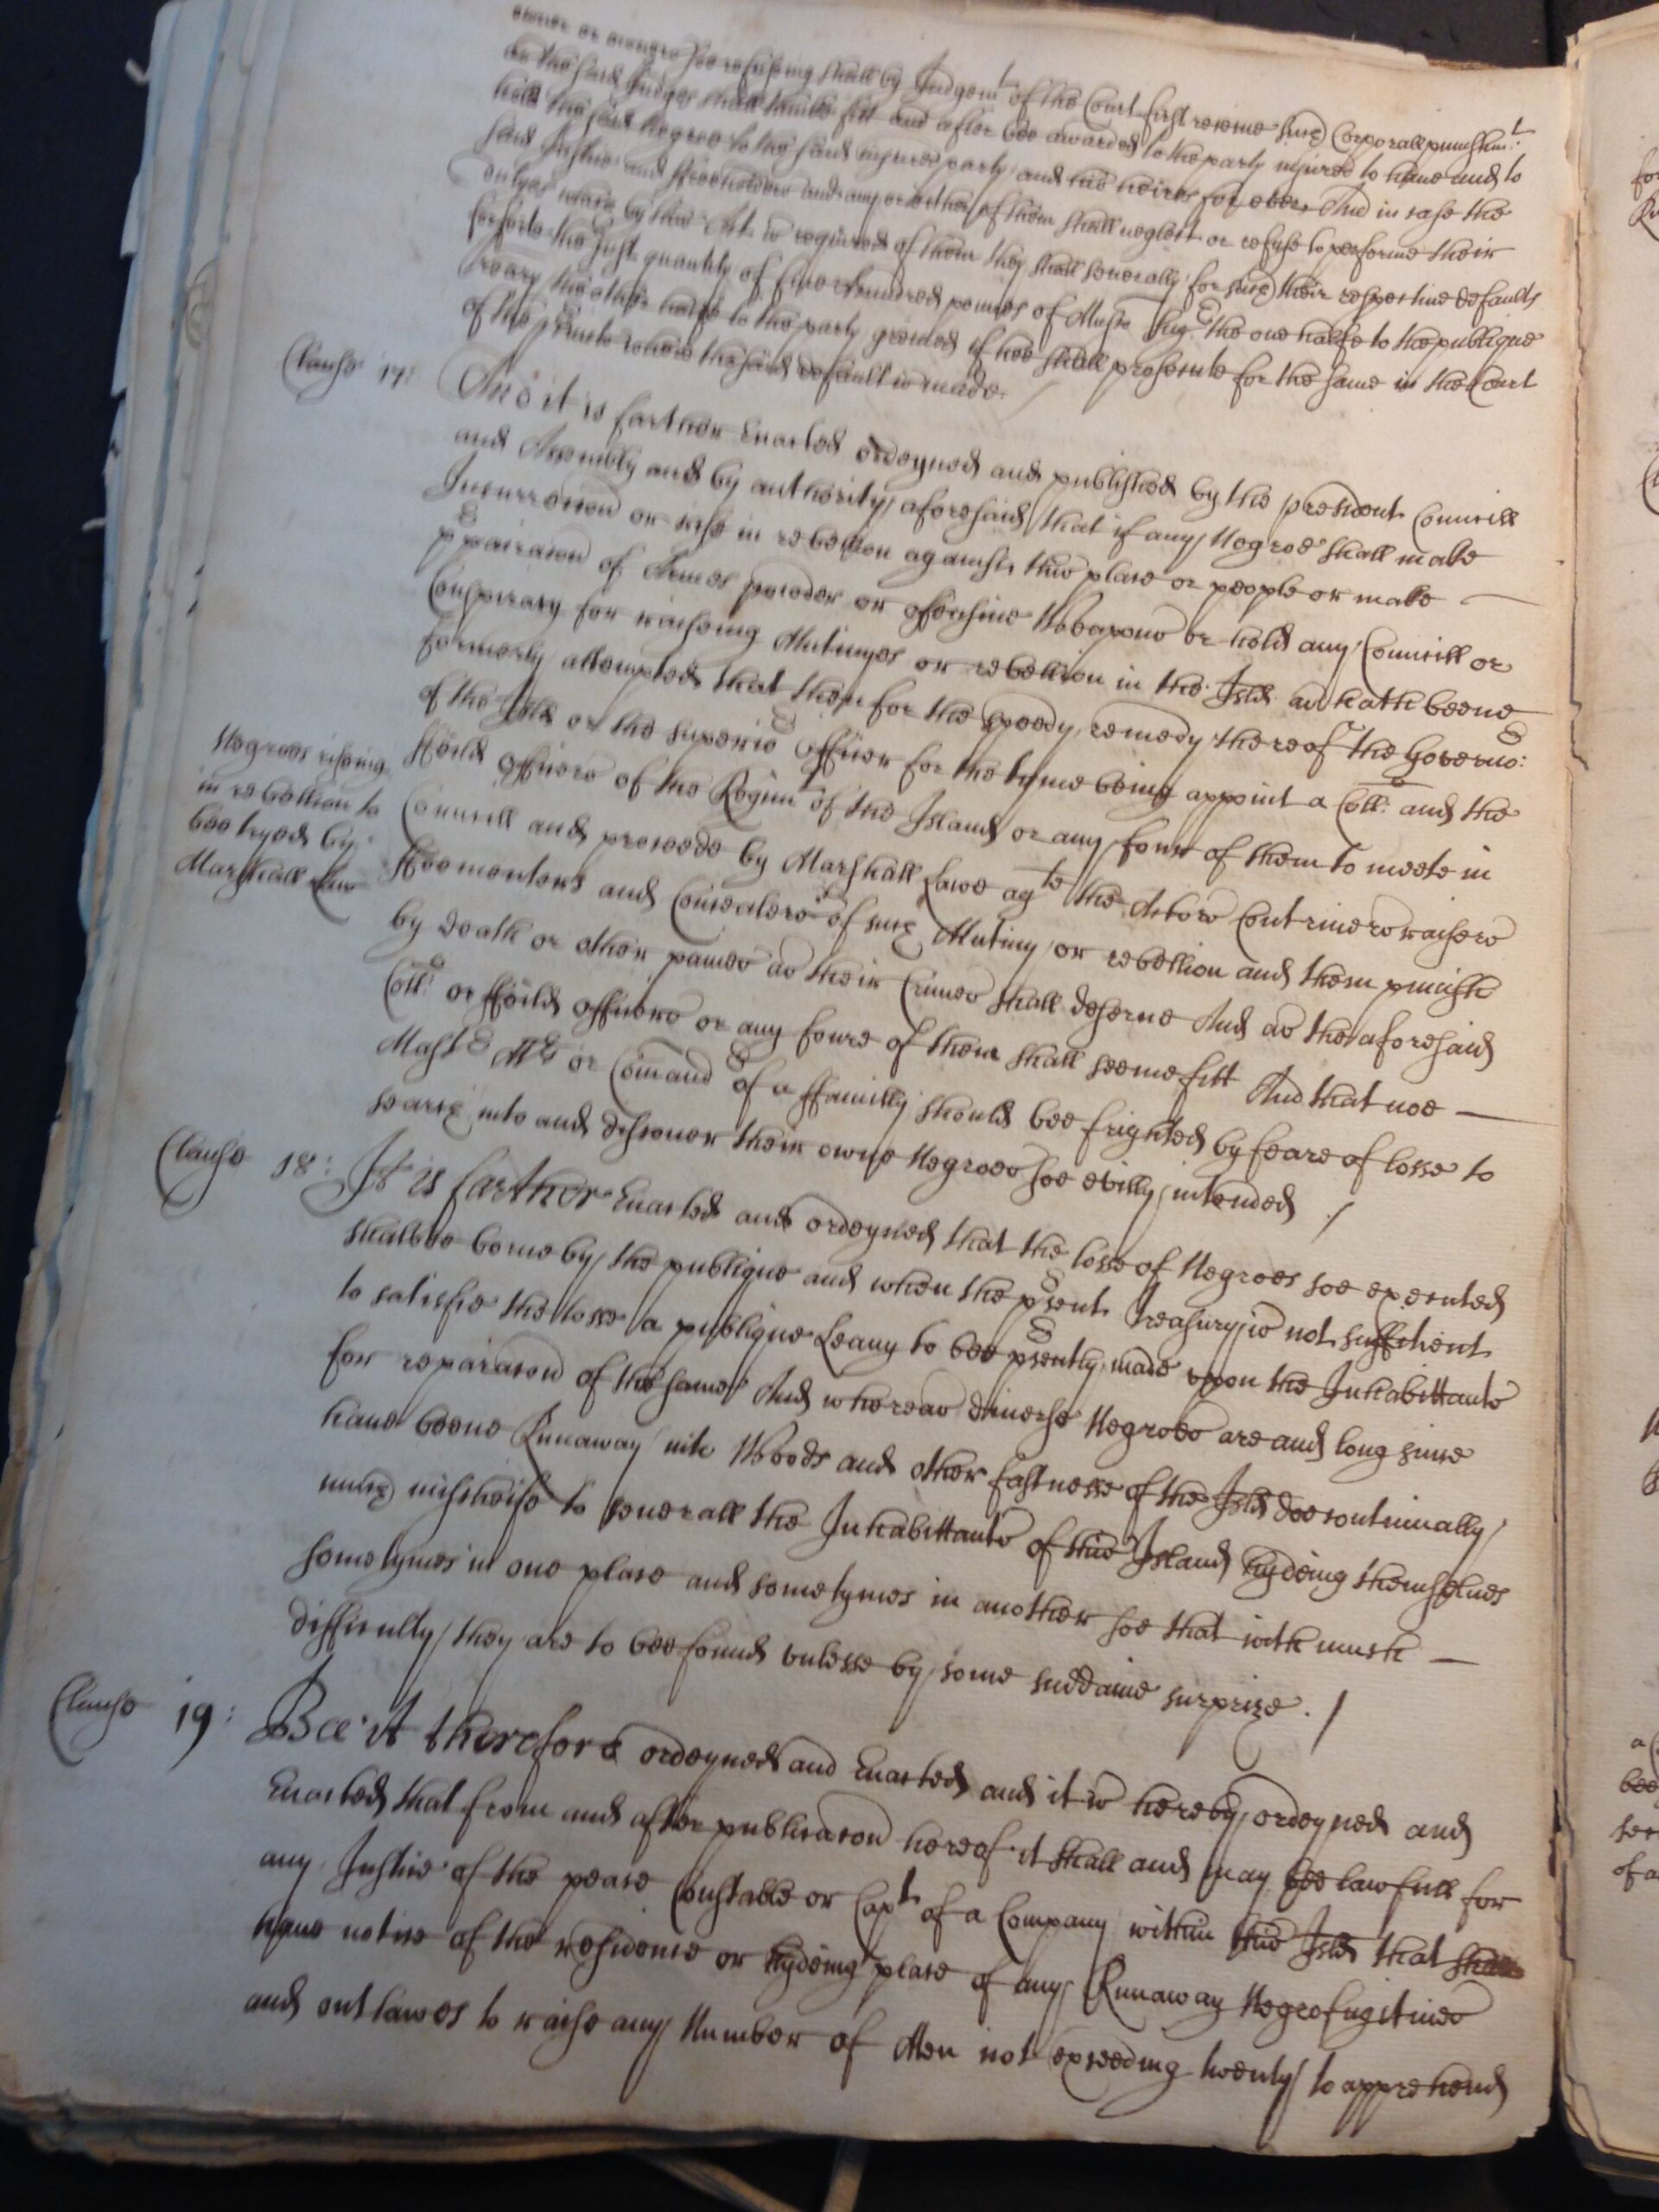 owner or owners soe refuseing shall by Judgem.t of the Court first receive such Corporall punishm.t
as the said Judges shall thinke fitt and after bee awarded to the party injured to have and to
hold the said Negroe to the said injured party and his heires for ever And in case the
said Justices and ffreeholders and any or either of them shall neglect or refuse to performe their
dutyes which by this Act is required of them they shall severally for such their respective defaults
forfeite the Just quantity of five hundred pounds of Musco Sug.r the one halfe to the publique
the other halfe to the party greived if hee shall prosecute for the same in the Court
of the where the said default is made.
Clause 17: And it is farther Enacted ordeyned and published by the president Councill
and Assembly and by authority aforesaid that if any Negroe shall make
Insurrecion or rise in rebellion against this place or people or make
ppairacon of Armes powder or offensive Weapons or hold any Councill or
Conspiracy for raiseing Mutinyes or rebellion in the Isld as hath beene
formerly attempted that then for the speedy remedy thereof the Governo:r
of the Isld or the superio.r officer for the tyme being appoint a Coll: and the
ffeild officers of the Regim.t of the Island or any four of them to meete in
Councill and proceede by Marshall Lawe ag.te the Actors Contrivers raisers
ffoementers and Concealers of such Mutiny or rebellion and them punish
by death or other paines as their Crimes shall deserve And as the aforesaid
Coll: or ffeild officers or any foure of them shall seeme fitt And that noe
Mast.r M.rs or Comand.r of a ffamilly should bee frighted by feare of losse to
search into and discover their owne Negroes soe evilly intended /
Negroes riseing
in rebellion to
bee tryed by
Marshall Law
Clause 18: It is farther Enacted and ordeyned that the losse of Negroes soe executed
shalbee borne by the publique and when the psent Treasury is not sufficient
to satisfie the losse a publique Leavy to bee psently made upon the Inhabittants
for reparacon of the same And whereas diverse Negroes are and long since
have beene Runaway into Woods and other fastnesse of the Isld doe continually
much mischeife to severall the Inhabittants of this Island hydeing themselves
sometymes in one place and sometymes in another soe that with much
difficulty they are to bee found unlesse by some suddaine surprize. /
Clause 19: Bee it therefore ordeyned and Enacted and it is hereby ordeyned and
Enacted that from and after publicacon hereof it shall and may bee lawfull for
any Justice of the peace Constable or Cap.t of a Company within this Isld that shall
have notice of the residence or hydeing place of any Runaway Negro fugitives
and outlawes to raise any Number of Men not exceeding twenty to apprehend